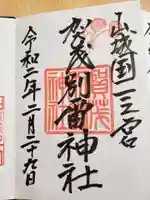 山城国一之宮
賀茂別雷神社
令和二年二月二十九日